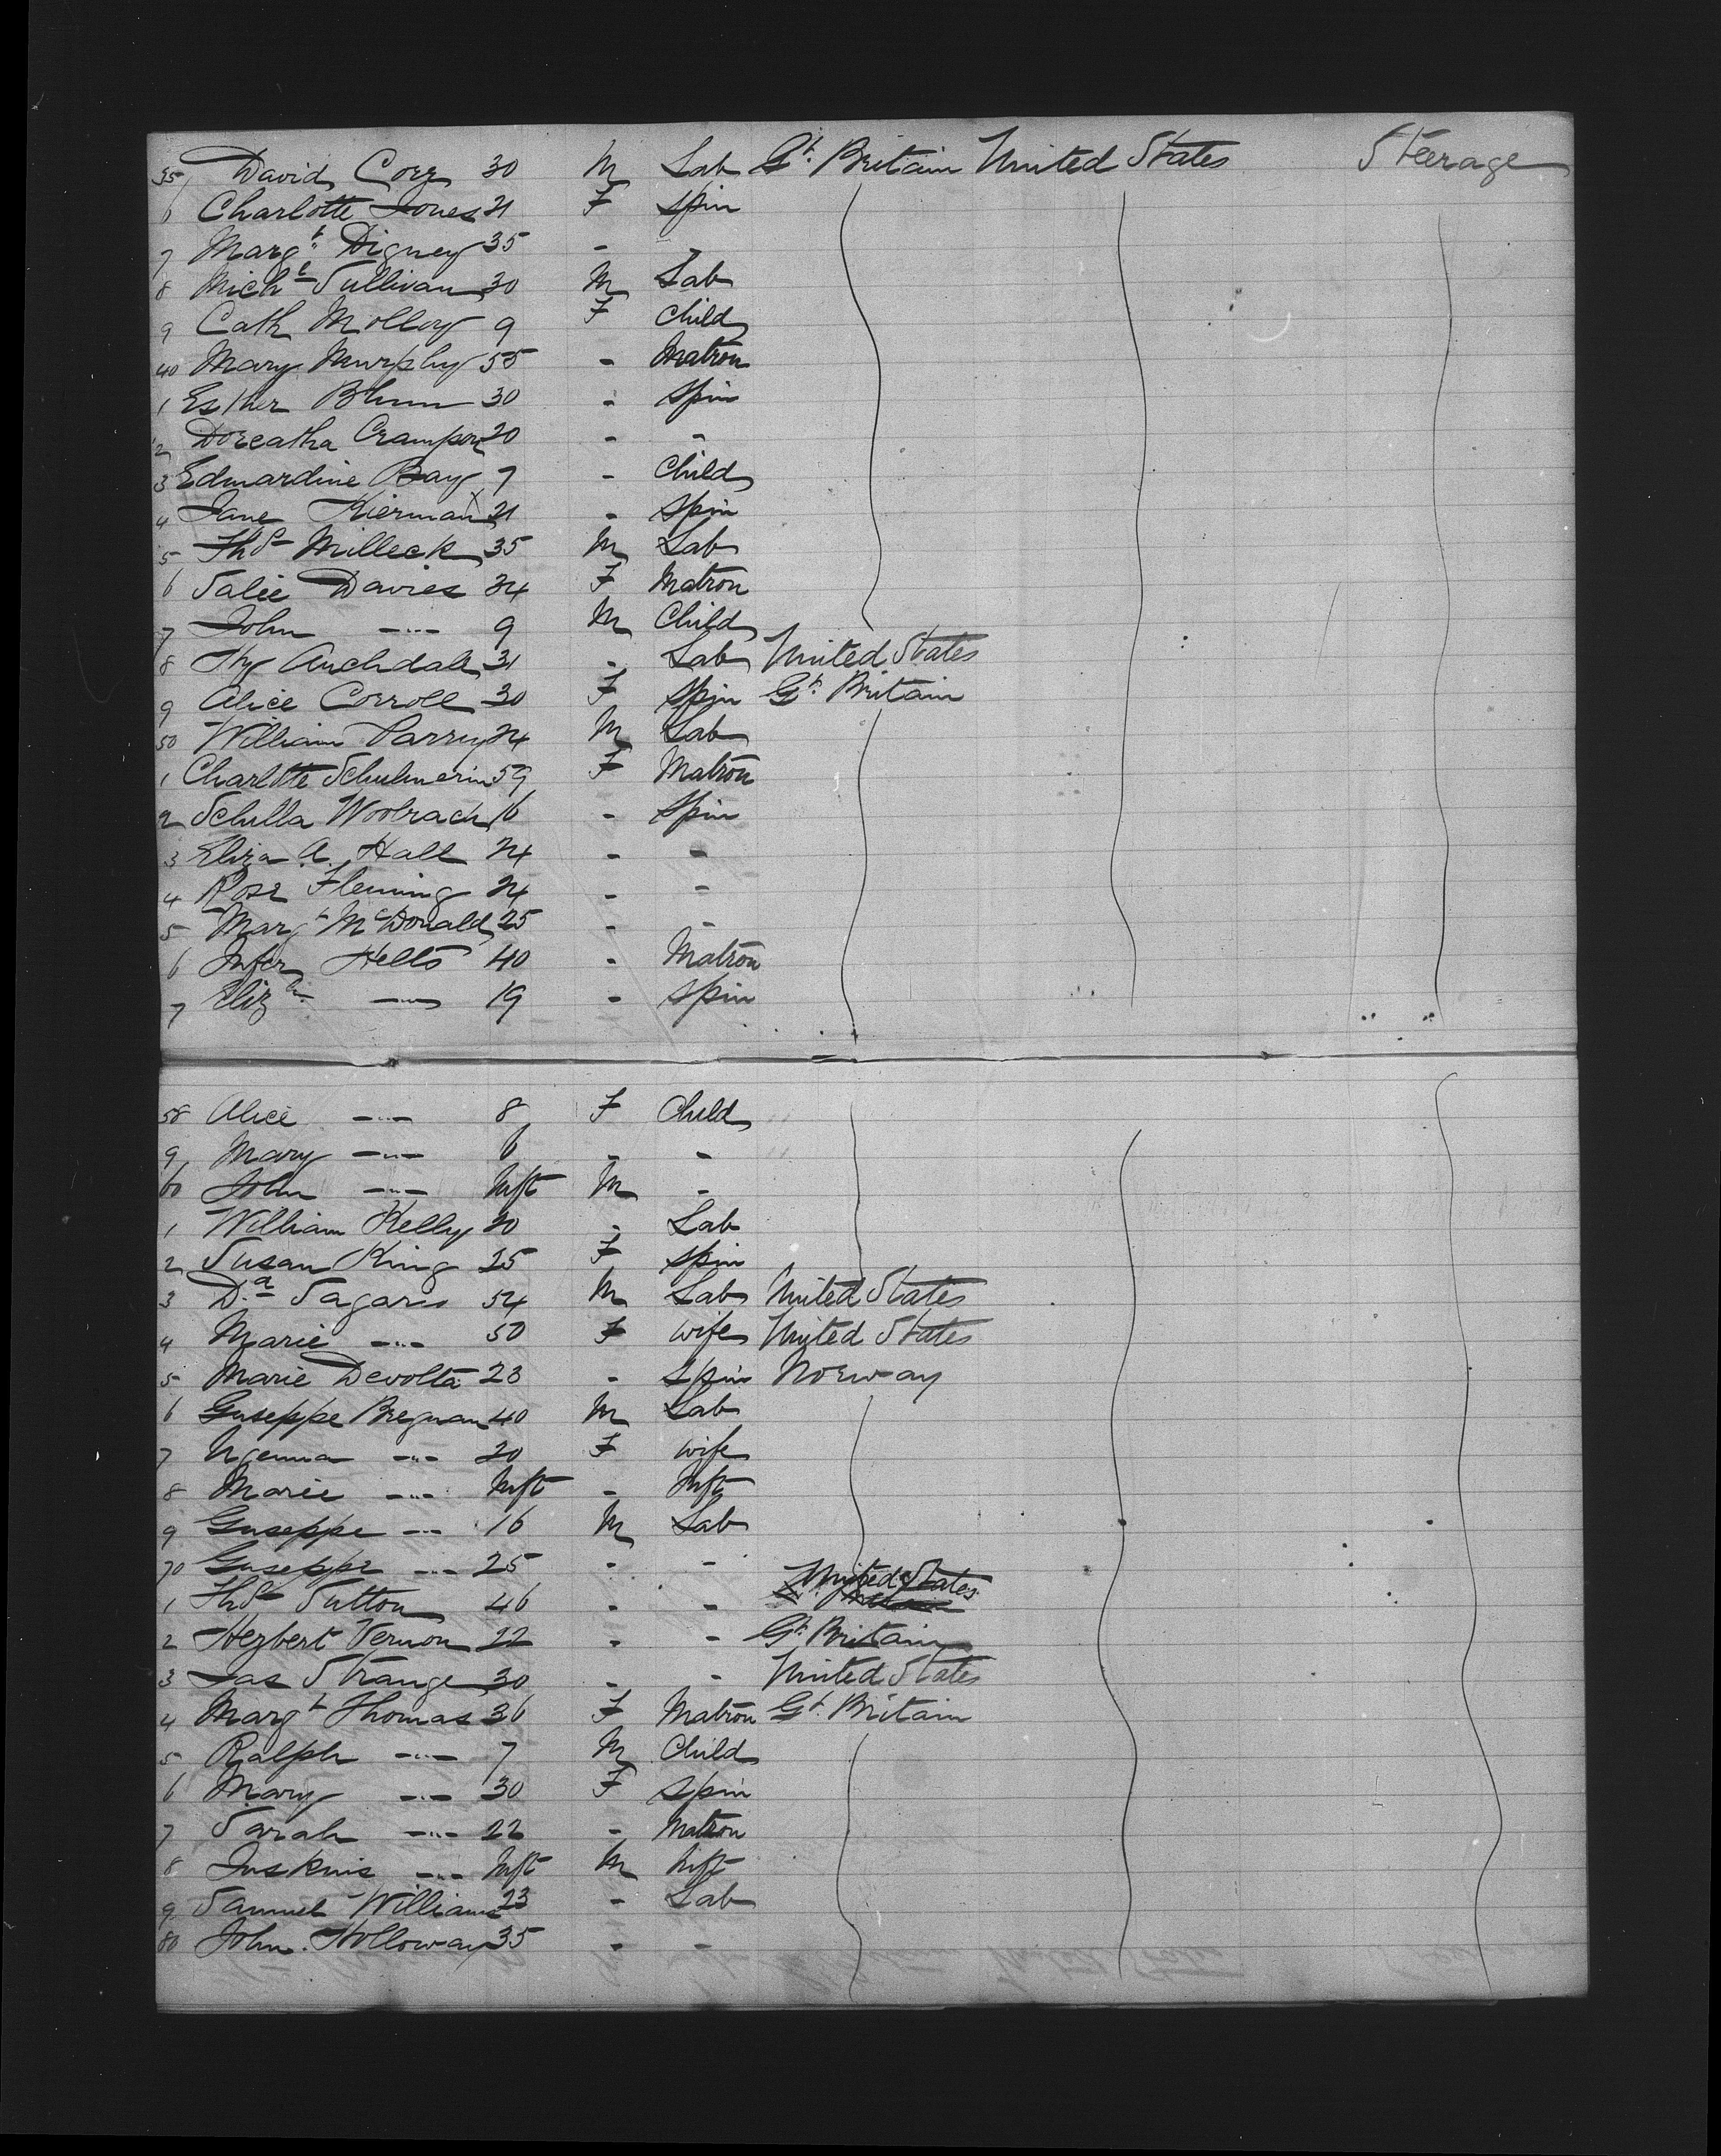 35 David Corg 30 M Lab Gt. Britain United States Steerage
6 Charlotte Jones 21 F Spin
7 Margt. Digney 35 -
8 Michl Sullivan 30 M Lab
9 Cath Molloy 9 F Child
40 Mary Murphy 55 - Matron
1 Esther Blum 30 - Spin
2 Doreatha Crampon 20 - -
3 Edmardine Bay 7 - Child
4 Jane Kierman 21 - Spin
5 Thos Milleck 35 M Lab
6 Salie Davies 34 F Matron
7 John -"- 9 M Child
8 Hy Archdall 31 - Lab United States
9 Alice Corroll 30 F Spin Gt. Britain
50 William Parry 24 M Lab
1 Charlotte Schulmerin 59 F Matron
2 Schilla Woolrach 16 - Spin
3 Eliza A. Hall 24 - -
4 Rose Fleming 24 - -
5 Margt McDonald 25 - -
6 Hells 40 - Matron
7 Elizth -"- 19 - Spin
58 Alice -"- 8 F Child
9 Mary -"- 6 - -
60 John -"- Inft M -
1 William Kelly 20 - Lab
2 Susan King 25 F Spin
3 Da. Sagario 54 M Lab United States
4 Marie -"- 50 F Wife United States
5 Marie Devolta 23 - Spin Norway
6 Guseppe Bregnan 40 M Lab
7 Ngenna -"- 20 F Wife
8 Marie -"- Inft - Inft
9 Guseppe -"- 16 M Lab
70 Guseppe -"- 25 - -
1 Thos Sutton 46 - - United States
2 Herbert Vernon 22 - - Gt. Britain
3 Jas Strange 30 - - United States
4 Margt Thomas 36 F Matron Gt. Britain
5 Ralph -"- 7 M Child
6 Mary -"- 30 F Spin
7 Sarah -"- 22 - Matron
8 Inskins -"- Inft M Inft
9 Samuel Williams 23 - Lab
80 John Holloway 35 - -